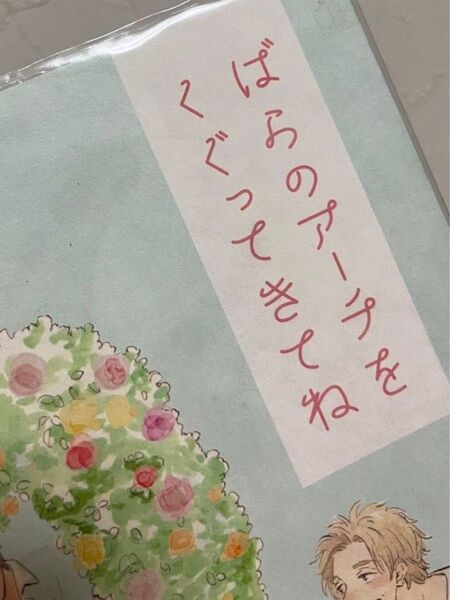 ばらのアーチを
くぐってきてね